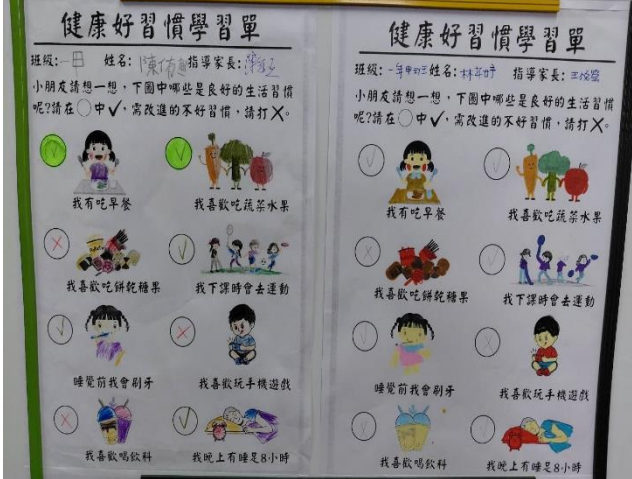 健康好習慣學習單
班級:一甲 姓名: 陳 指導家長:
小朋友請想一想,下圖中哪些是良好的生活習慣
呢?請在○中✓,需改進的不好習慣,請打X。
✓ ✓
我有吃早餐 我喜歡吃蔬菜水果
X ✓
我喜歡吃餅乾糖果 我下課時會去運動
✓ X
睡覺前我會刷牙 我喜歡玩手機遊戲
X ✓
我喜歡喝飲料 我晚上有睡足8小時
健康好習慣學習單
班級:一年甲班 姓名:林 指導家長:王
小朋友請想一想,下圖中哪些是良好的生活習慣
呢?請在○中✓,需改進的不好習慣,請打X。
✓ ✓
我有吃早餐 我喜歡吃蔬菜水果
X ✓
我喜歡吃餅乾糖果 我下課時會去運動
✓ X
睡覺前我會刷牙 我喜歡玩手機遊戲
✓ ✓
我喜歡喝飲料 我晚上有睡足8小時